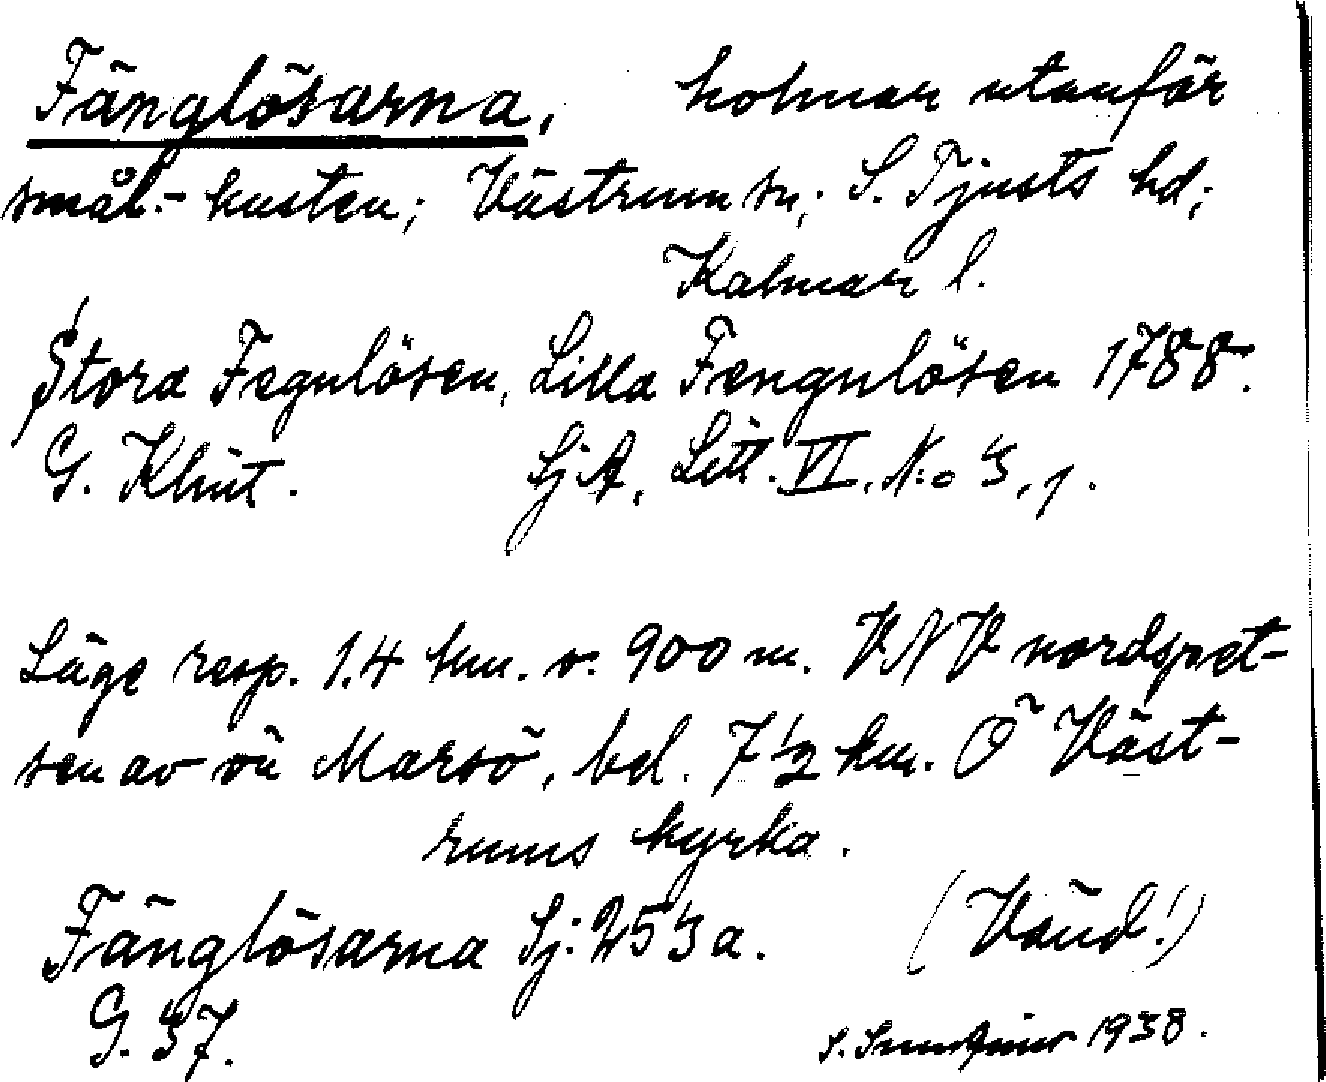 Fänglösarna, holmar utanför
smål.-kusten; Västrum sn; S. Tjusts hd;
Kalmar l.
Stora Fegnlösen, Lilla Fengnlösen 1788.
G. Klint. SjA, Litt. VI, N:o 3, 1.
Läge resp. 1.4 km. o. 900 m. VNV nordspet-
sen av ön Marsö, bel. 7 1/2 km. Ö Väst-
rums kyrka.
Fänglösarna Sj: 253a. (Vänd!)
G. 37.
S. 1938.